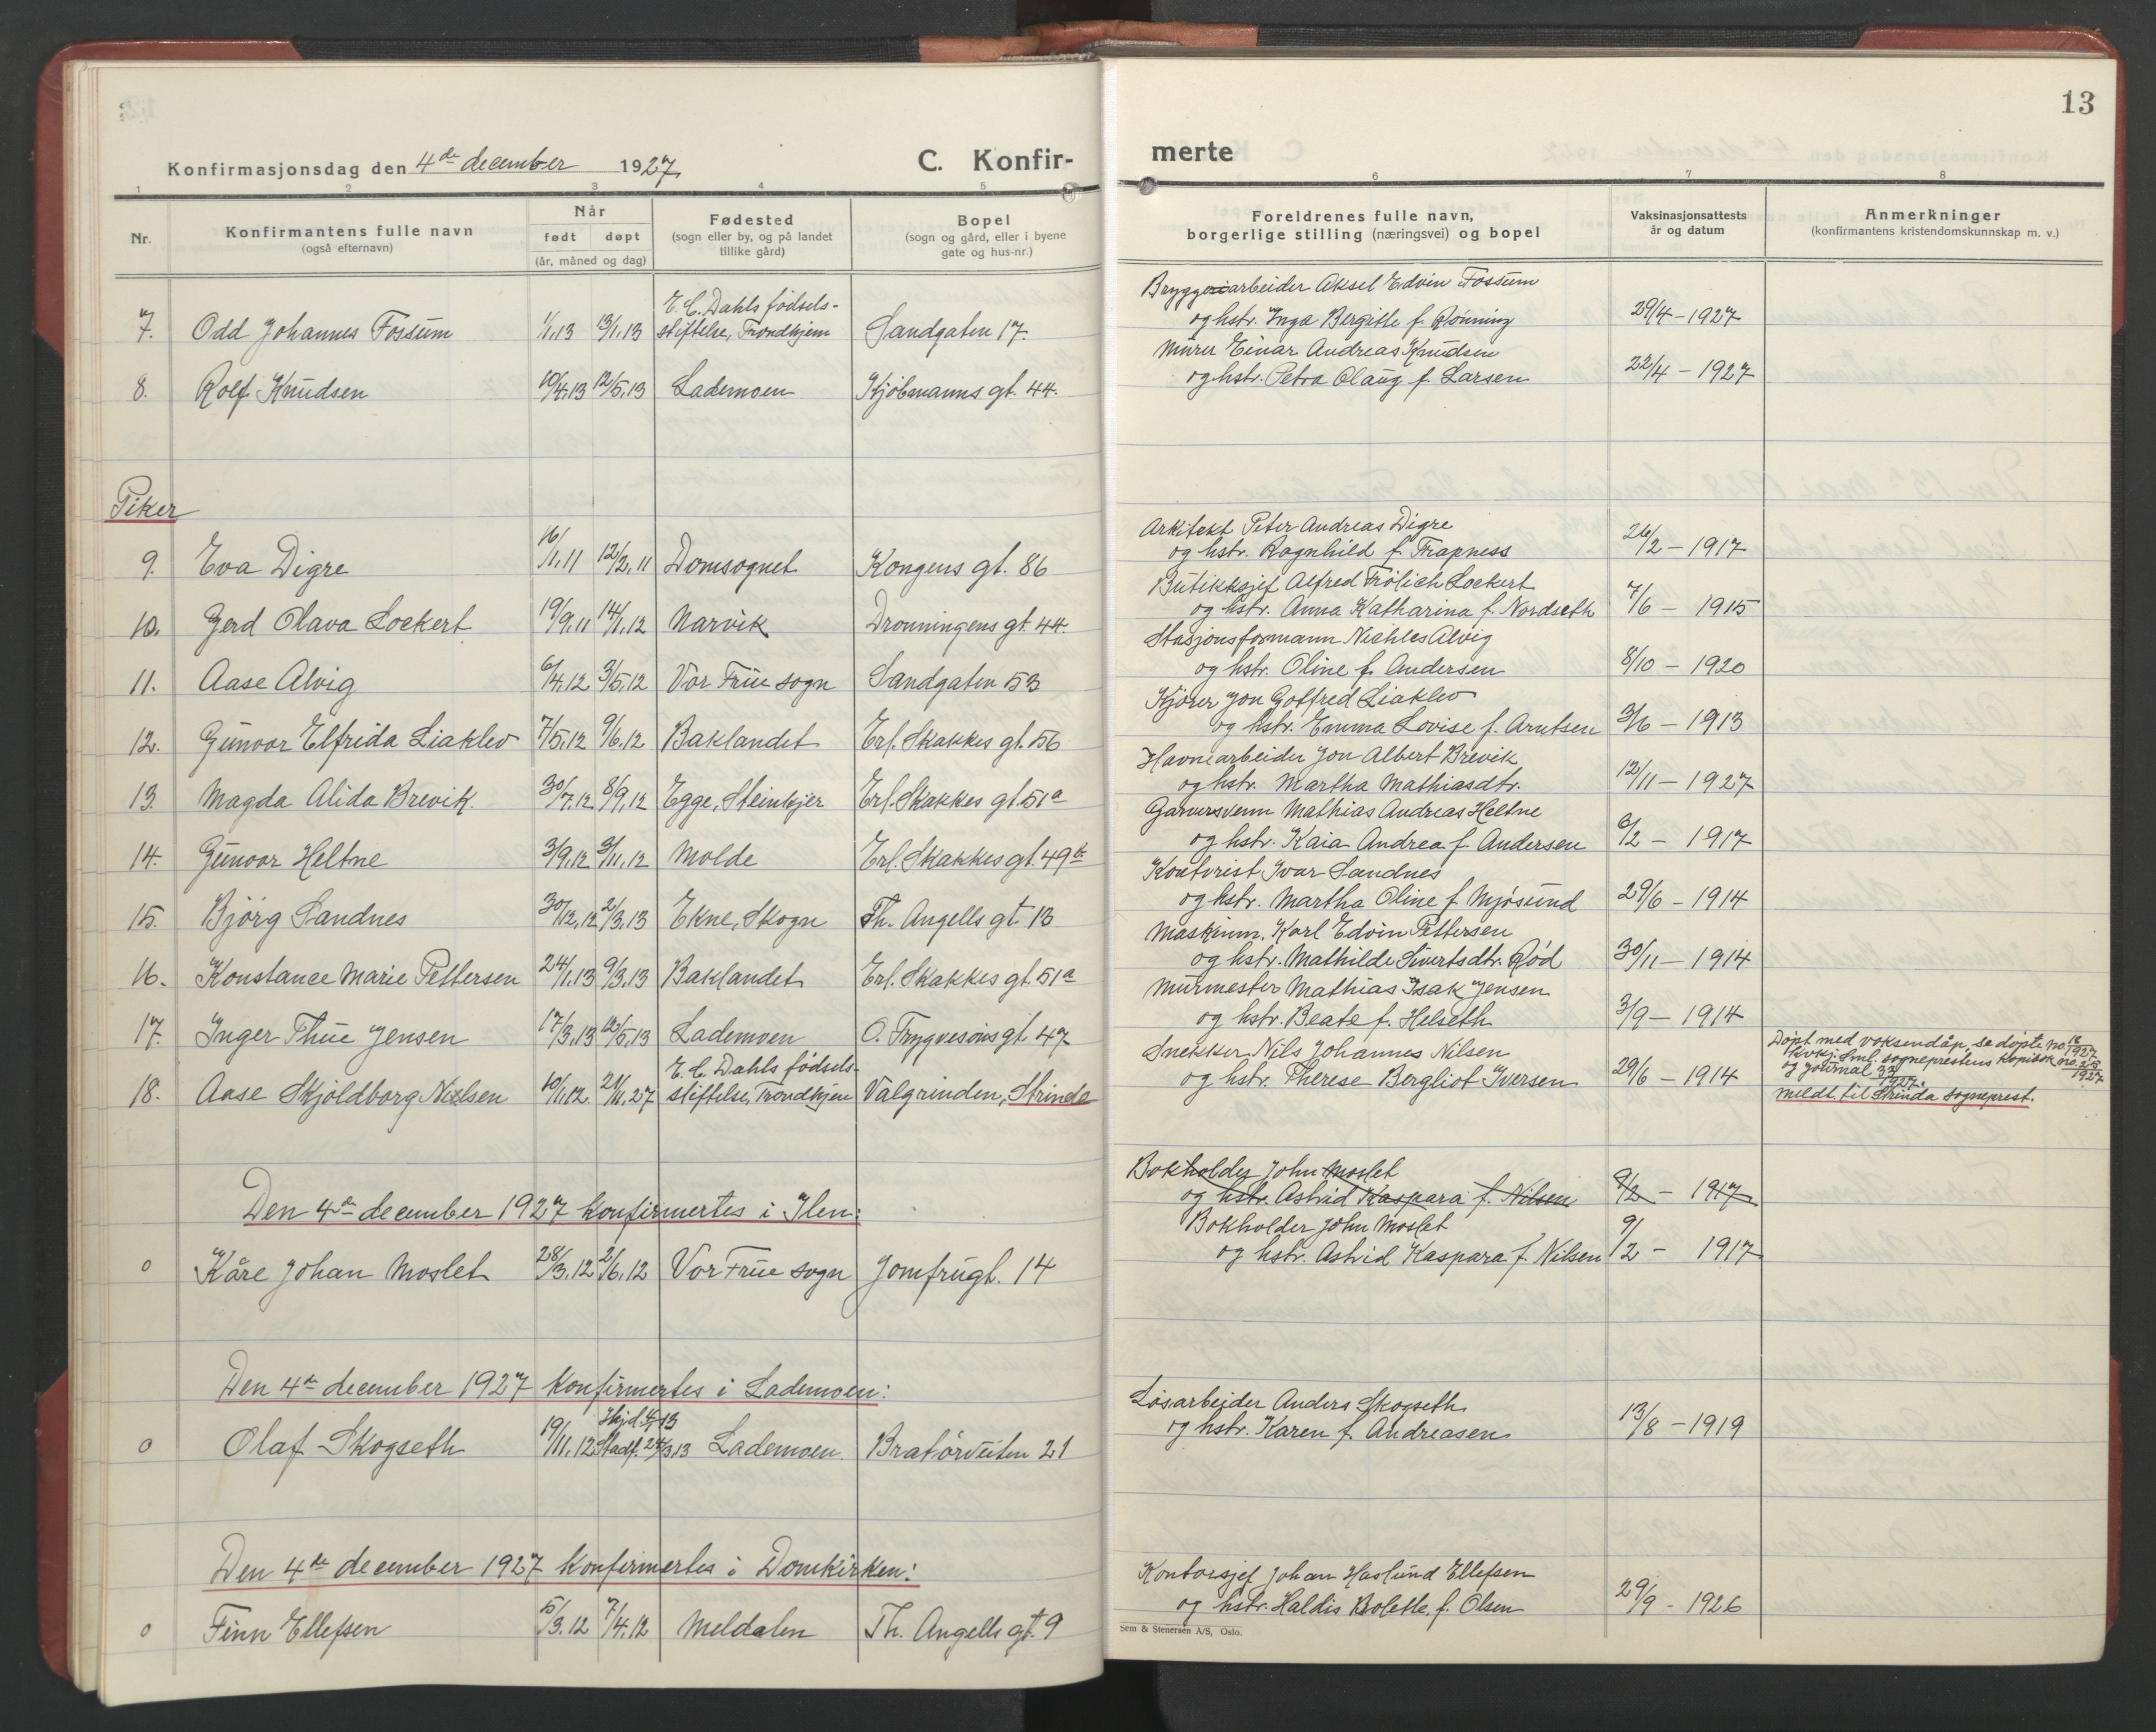 13
Konfirmasjonsdag den 4de december 1927. C. Konfir-
merte
1 2 3 4 5
6 7 8
Nr.
Konfirmantens fulle navn
(også efternavn)
Når
født døpt
(år, måned og dag)
Fødested
(sogn eller by, og på landet
tillike gård)
Bopel
(sogn og gård, eller i byene
gate og hus-nr.)
Foreldrenes fulle navn,
borgerlige stilling (næringsvei) og bopel
Vaksinasjonsattests
år og datum
Anmerkninger
(konfirmantens kristendomskunnskap m. v.)
E. C. Dahls fødsels-
7. Odd Johannes Fossum 1/1.13 13/1.13 stiftelse, Trondhjem Sandgaten 17.
Bryggeriarbeider Aksel Edvin Fossum
og hstr. Inga Bergitte f. Rönning 29/4 - 1927
8. Rolf Knudsen 10/4.13 12/5.13 Lademoen Kjöbmanns gt. 44.
Murer Einar Andreas Knudsen
og hstr. Petra Olaug f. Larsen 22/4 - 1927
Piker
9. Eva Digre 16/1.11 12/2.11 Domsognet Kongens gt. 86
Arkitekt Peter Andreas Digre
og hstr. Ragnhild f. Trapness 26/2 - 1917
10. Gerd Olava Lockert 19/9.11 14/1.12 Narvik Dronningens gt. 44.
Butikksjef Alfred Frölich Lockert
og hstr. Anna Katharina f. Nordseth 7/6 - 1915
11. Aase Alvig 6/4.12 3/5.12 Vor Frue sogn Sandgaten 53
Stasjonsformann Nichles Alvig
og hstr. Oline f. Andersen 8/10 - 1920
12. Gunvor Elfrida Liaklev 7/5.12 9/6.12 Baklandet Erl. Skakkes gt. 56
Kjörer Jon Gotfred Liaklev
og hstr. Emma Lovise f. Arntsen 3/6 - 1913
13. Magda Alida Brevik. 30/7.12 8/9.12 Egge, Steinkjer Erl. Skakkes gt. 51a
Havnearbeider Jon Albert Brevik
og hstr. Martha Mathiasdtr. 12/11 - 1927
14. Gunvor Heltne 3/9.12 3/11.12 Molde Erl. Skakkes gt. 49b
Garversvenn Mathias Andreas Heltne
og hstr. Kaia Andrea f. Andersen 6/2 - 1917
15. Björg Sandnes 30/12.12 2/3.13 Ekne, Skogn Th. Angells gt 13
Kontorist Ivar Sandnes
og hstr. Martha Oline f Mjösund 29/6 - 1914
16. Konstance Marie Pettersen 24/1.13 9/3.13 Baklandet Erl. Skakkes gt. 51a
Maskinm. Karl Edvin Pettersen
og hstr. Mathilde Sivertsdtr. Rød 30/11 - 1914
17. Inger Thue Jensen 17/3.13 12/5.13 Lademoen O. Trygvesöns gt 47
Murmester Mathias Isak Jensen
og hstr. Beate f. Helseth 3/9 - 1914
E. C. Dahls fødsels-
18. Aase Skjoldborg Nielsen 10/1.12. 21/11.27 stiftelse, Trondhjem Valgrinden, Strinda
Snekker Nils Johannes Nilsen
og hstr. Therese Bergliot Iversen 29/6 - 1914
Døpt med voksendåp, se døpte no.
sogneprestens kopibok no.
og journal
1927
meldt til Strinda sogneprest.
Den 4de december 1927 konfirmertes i Ilen:
Bokholder John Moslet
og hstr. Astrid Kaspara f. Nilsen 9/2 - 1917
o Kåre Johan Moslet 28/3.12 2/6.12 Vor Frue sogn Jomfrugt. 14
Bokholder John Moslet
og hstr. Astrid Kaspara f. Nilsen 9/2 - 1917
Den 4de december 1927 konfirmertes i Lademoen:
o Olaf Skogseth 19/11.12 Stadf. 24/3.13 Lademoen. Bratørveiten 21
Løsarbeider Anders Skogseth
og hstr. Karen f. Andreasen 13/8 - 1919
Den 4de december 1927 konfirmertes i Domkirken:
o Finn Ellefsen 5/3.12 7/4.12 Meldalen Th. Angells gt. 9
Kontorsjef Johan Haslund Ellefsen
og hstr. Haldis Bolette, f. Olsen 29/9 - 1926
Sem & Stenersen A/S, Oslo.